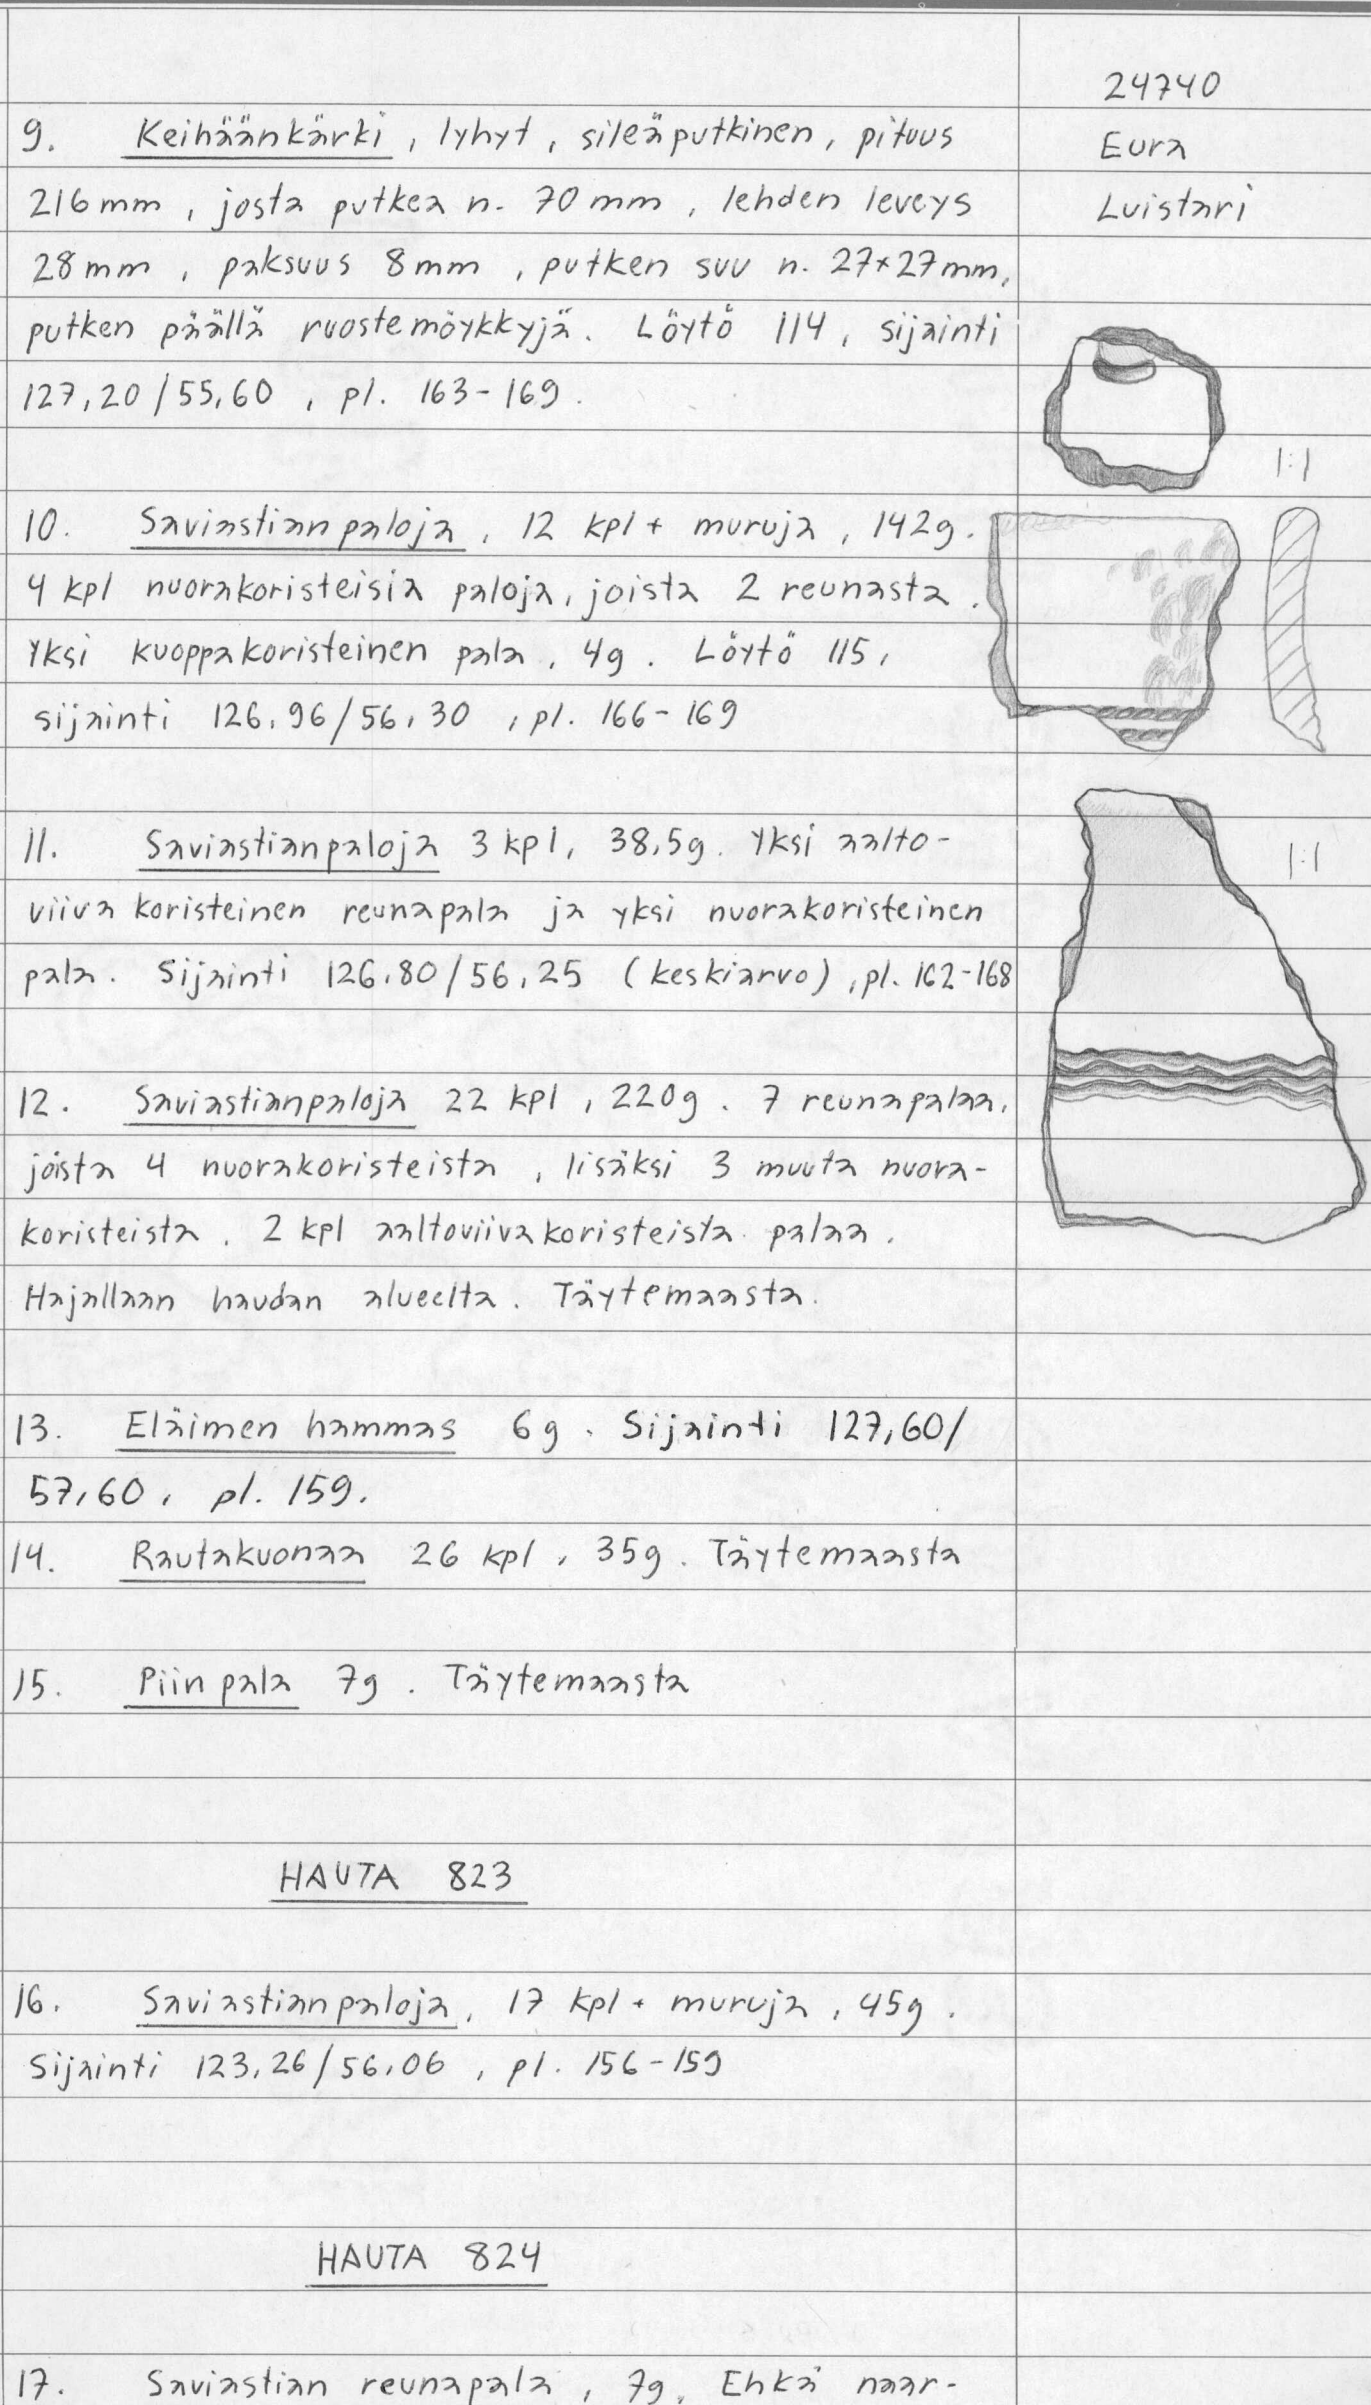 24740
Eura
Luistari
9. Keihäänkärki, lyhyt, sileäputkinen, pituus
216 mm, josta putkea n. 70 mm, lehden leveys
28 mm, paksuus 8 mm, putken suu n. 27×27 mm,
putken päällä ruostemöykkyjä. Löytö 114, sijainti
127,20/55,60, pl. 163-169.
1:1
10. Saviastianpaloja, 12 kpl + muruja, 142g.
4 kpl nuorakoristeisia paloja, joista 2 reunasta.
Yksi kuoppakoristeinen pala, 4g. Löytö 115,
sijainti 126,96/56,30, pl. 166-169
11. Saviastianpaloja 3 kpl, 38,5g. Yksi aalto-
viivakoristeinen reunapala ja yksi nuorakoristeinen
pala. Sijainti 126,80/56,25 (keskiarvo), pl. 162-168
1:1
12. Saviastianpaloja 22 kpl, 220g. 7 reunapalaa,
joista 4 nuorakoristeista, lisäksi 3 muuta nuora-
koristeista. 2 kpl aaltoviivakoristeista palaa.
Hajallaan haudan alueelta. Täytemaasta.
13. Eläimen hammas 6g. Sijainti 127,60/
57,60, pl. 159.
14. Rautakuonaa 26 kpl, 35g. Täytemaasta
15. Piin pala 7g. Täytemaasta
HAUTA 823
16. Saviastianpaloja, 17 kpl + muruja, 45g.
Sijainti 123,26/56,06, pl. 156-159
HAUTA 824
17. Saviastian reunapala, 7g. Ehkä naar-